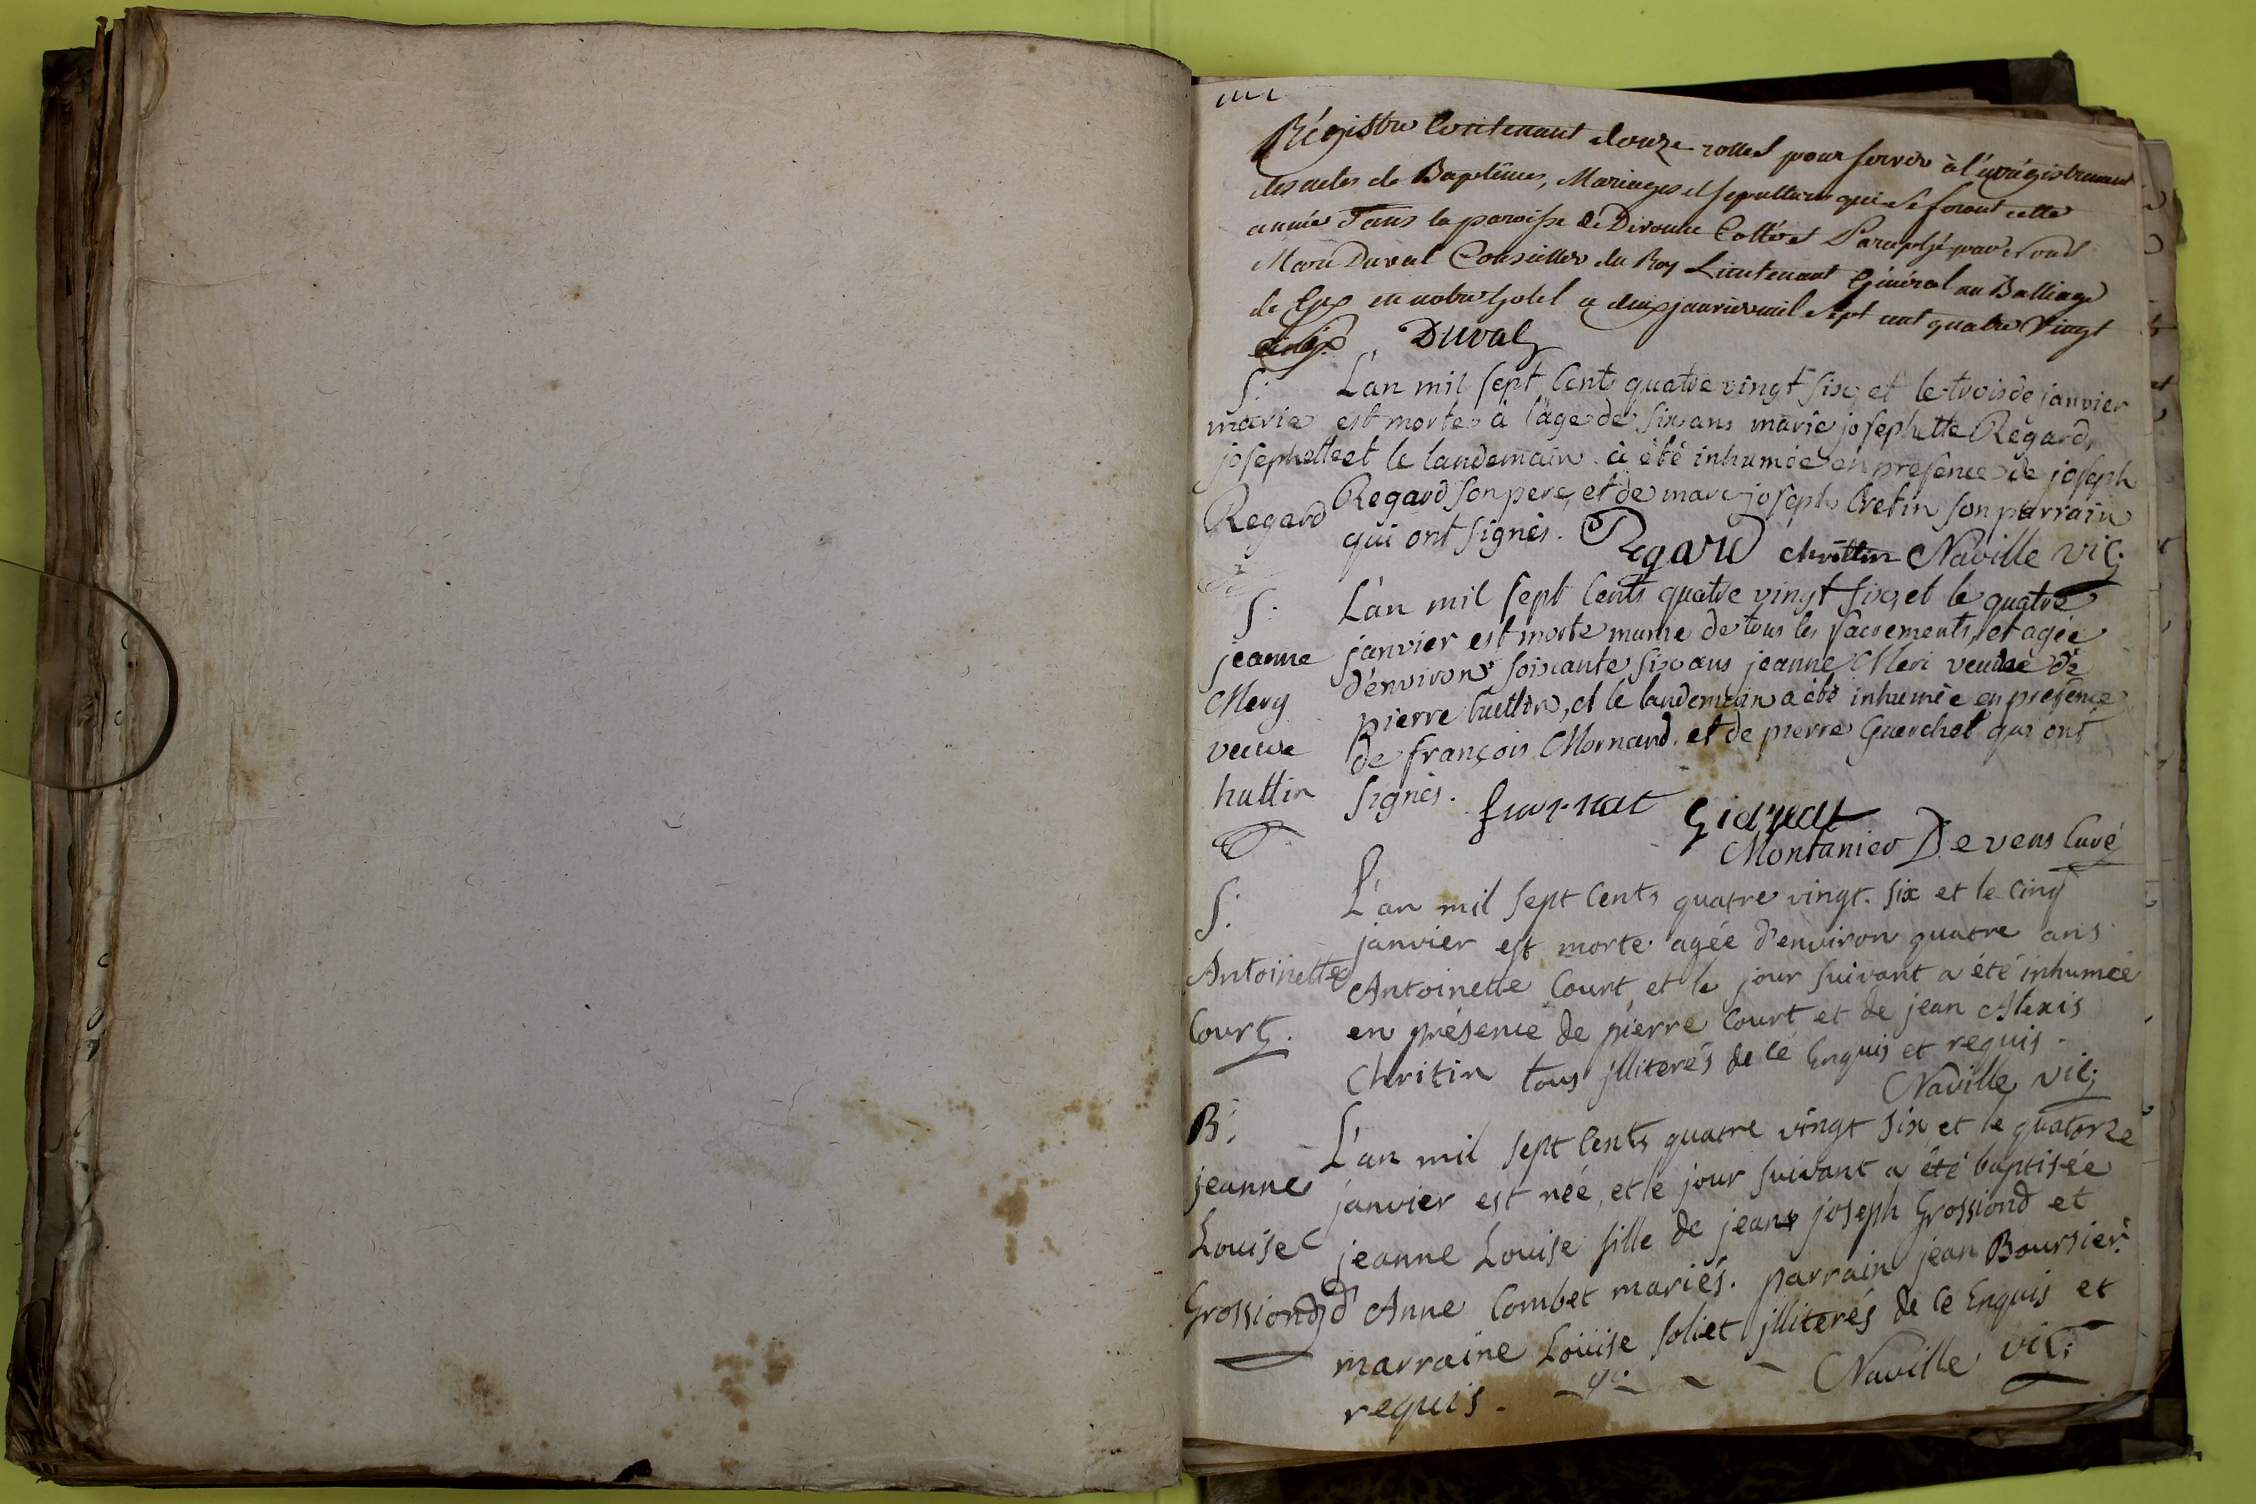 Régistre Contenant douze rolles pour servir à l'enrégistrement
des actes de Baptêmes, Mariages et sepultures qui se feront cette
année dans la paroisse de Divonne Cotté et Paraphé par
Marie Duval Conseiller du Roy Lieutenant Général au Balliage
de Gex en notre hotel ce deux janvier mil sept cent quatre Vingt
Duval
S:
marie
josephette
Regard
L'an mil sept Cents quatre vingt six, et le trois de janvier
est morte à l'age de six ans marie josephette Regard,
et le landemain a été inhumée en presence de joseph
Regard son pere, et de marc joseph Cretin son parrain
qui ont signés. Regard chrittin Naville vic:
S:
jeanne
Mery
veuve
huttin
L'an mil sept Cents quatre vingt six, et le quatre
janvier est morte munie de tous les sacrements, et agée
d'environs soixante six ans jeanne Meri veuve de
pierre huttin, et le landemain a été inhumée en presence
de françois Mornand, et de pierre Guerchet qui ont
signés.
Montanier Devens Curé
S:
Antoinette
Court.
L'an mil sept Cents quatre vingt. six et le cinq
janvier est morte agée d'environ quatre ans
Antoinette Court, et le jour suivant a été inhumée
en présence de pierre Court et de jean Alexis
Chritin tous jlliterés de cé Enquis et requis.
Naville vic:
B:
jeanne
Louise
Grossiond
L'an mil sept Cents quatre vingt six et le quatorze
janvier est née, et le jour suivant a été baptisée
jeanne Louise fille de jean joseph Grossiond et
d'Anne Combet mariés. parrain jean Boursier.
marraine Loüise soliet jlliterés de ce Enquis et
requis. Naville vic: